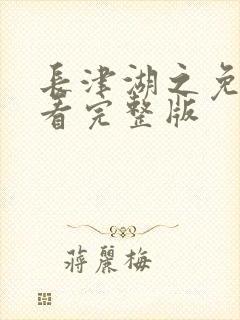 長津湖之免
看完整版
蔣麗梅